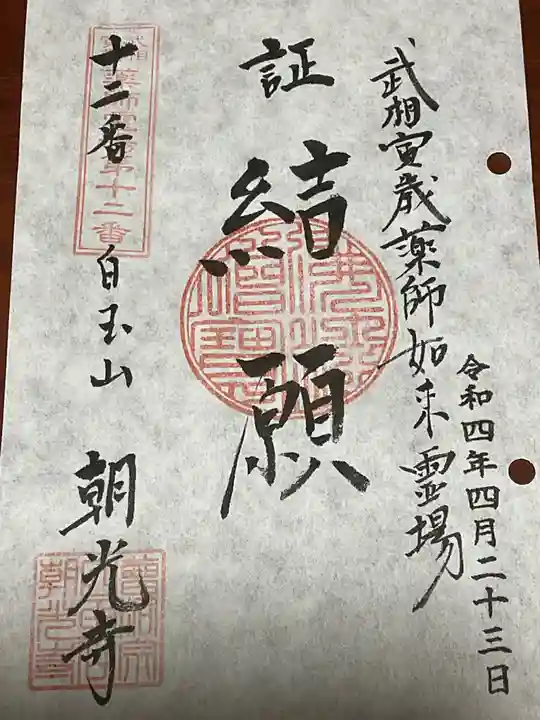 武相寅歳薬師如来霊場
令和四年四月二十三日
証
結願
十二番 白玉山 朝光寺
第十二番
朝光寺